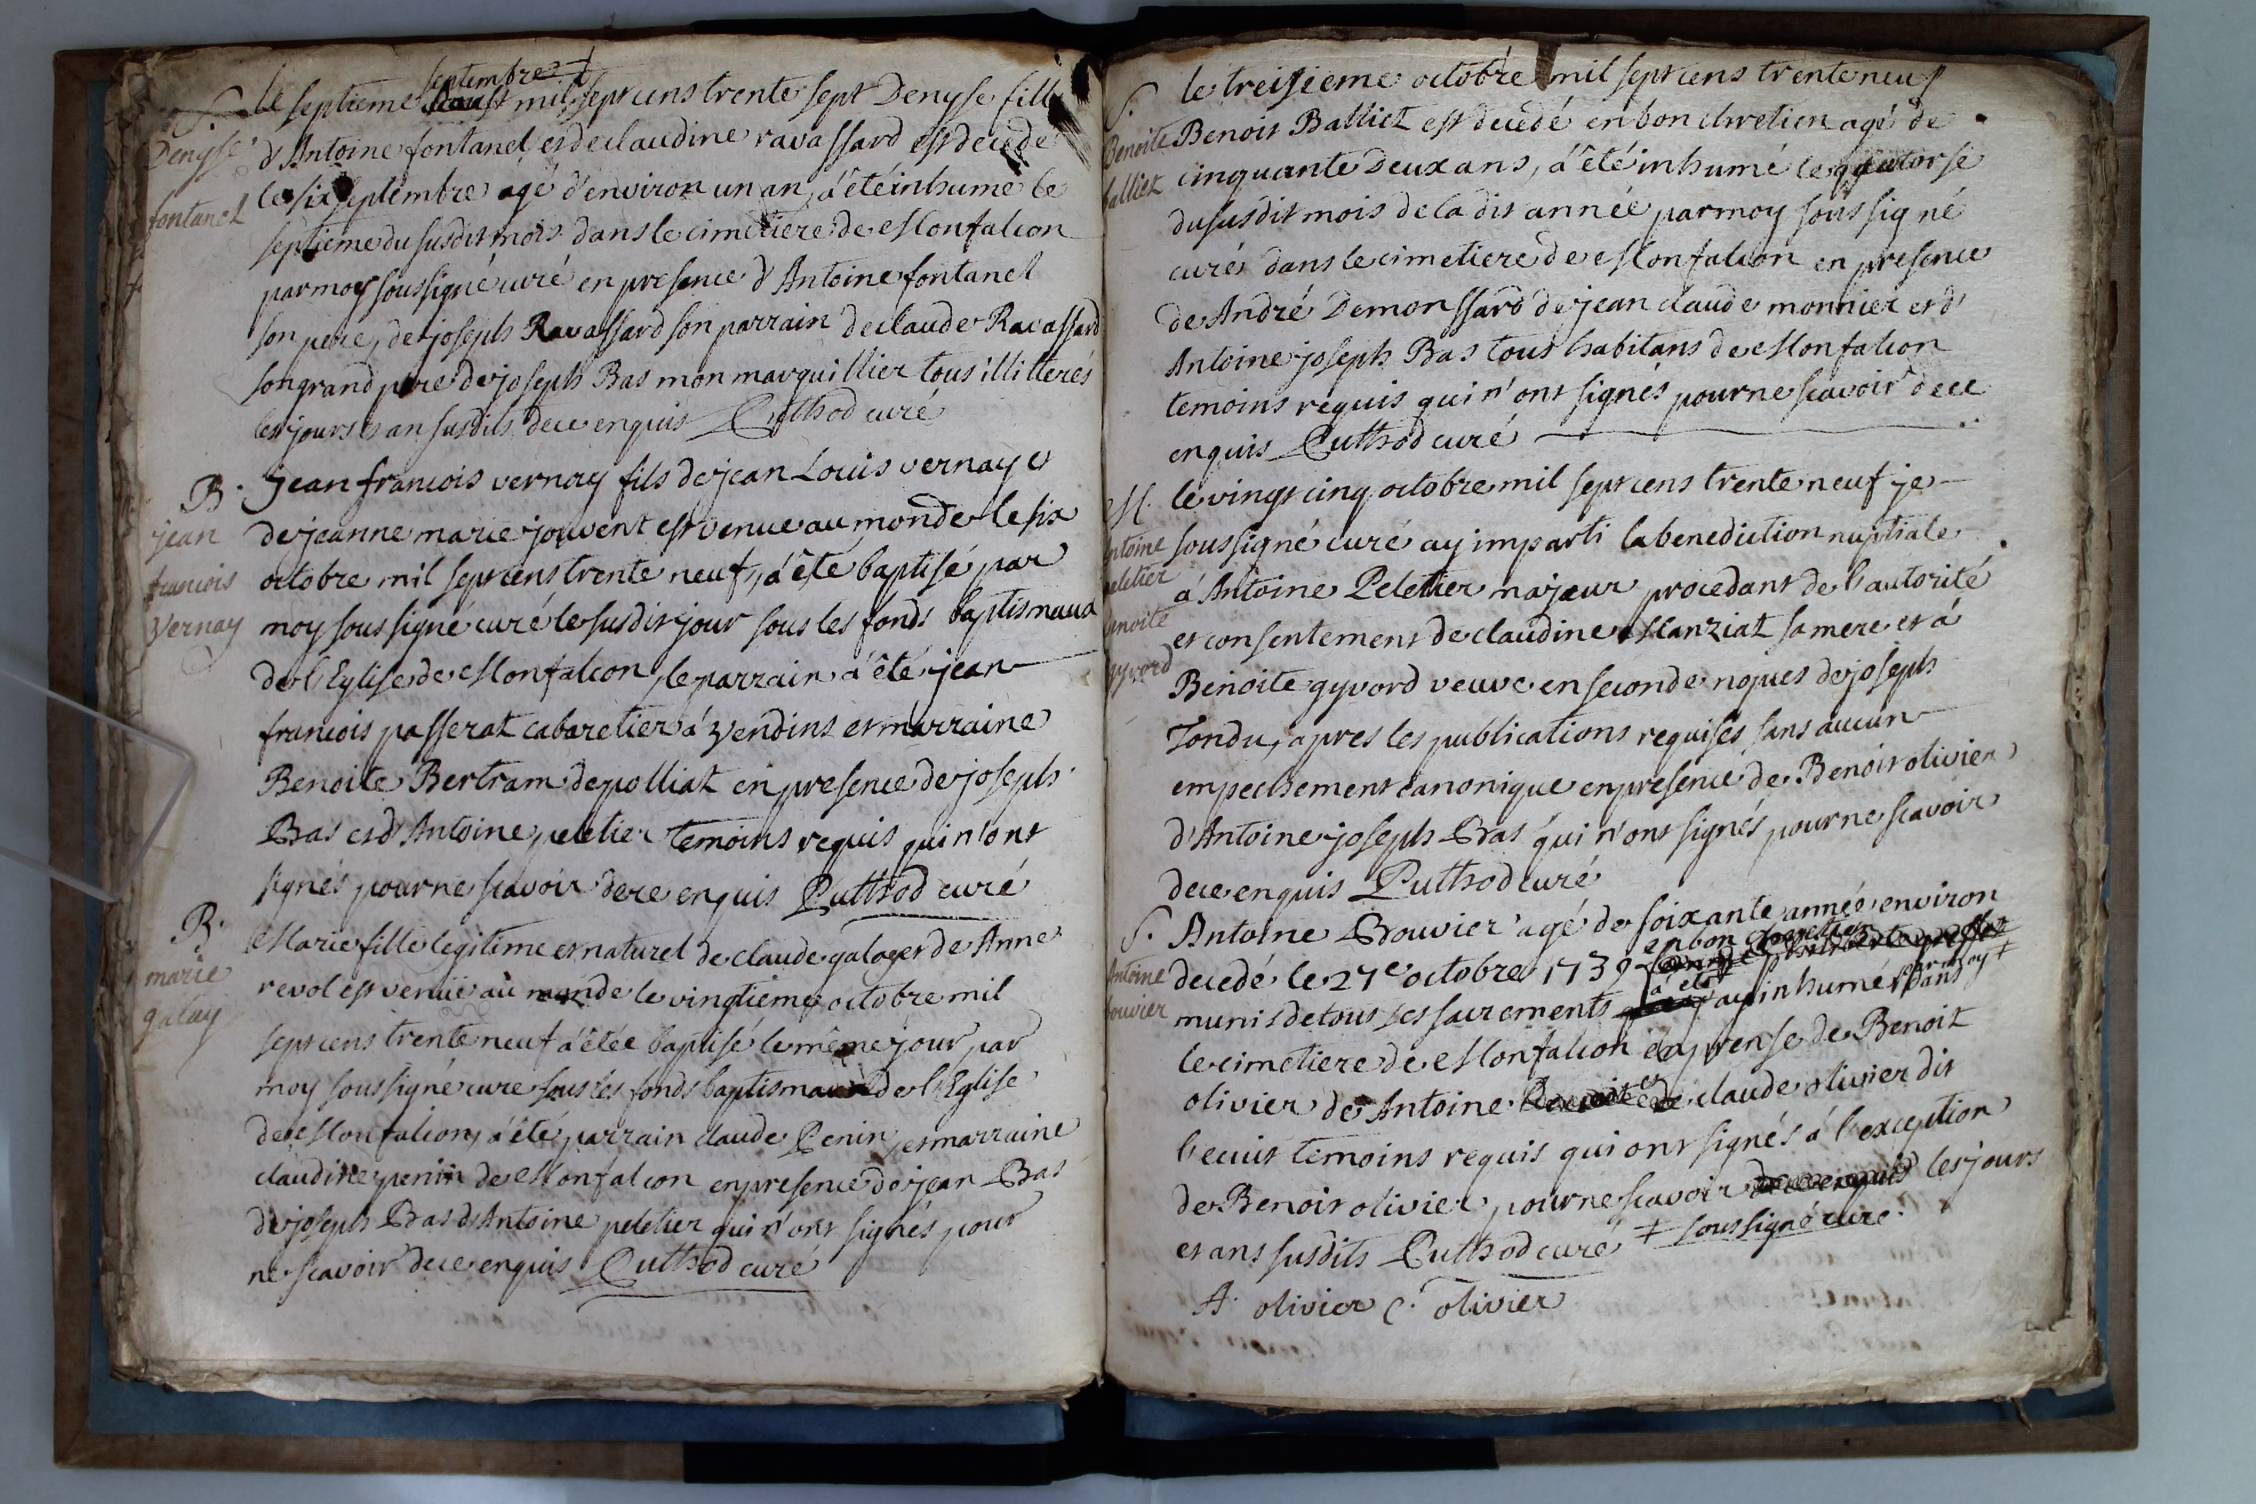 S. le septieme septembre mil sept cens trente sept Denyse fille
Denyse d'Antoine fontanel et de claudine ravassard est decedé
fontanel le six septembre agé d'environ un an, a été inhumé le
septieme du susdit mois dans le cimetiere de Monfalcon
par moy soussigné curé en presence d'Antoine fontanel
son pere, de joseph Ravassard son parrain de claude Ravassard
son grand pere de joseph Bas mon marguillier tous illitterés
les jours et an susdits de ce enquis Cuttsod curé
B. Jean francois vernay fils de jean Louis vernay et
jean de jeanne marie jouvent est venue au monde le six
francois octobre mil sept cens trente neuf, a été baptisé par
vernay moy soussigné curé le susdit jour sous les fonds baptismaux
de l'Eglise de Monfalcon, le parrain a été jean
francois passerat cabaretier a vendins et marraine
Benoite Bertram de polliat en presence de joseph
Bas et d'Antoine peletier temoins requis qui n'ont
signés pour ne scavoir de ce enquis Cuttsod curé
B. Marie fille legitime et naturel de claude galay et de Anne
marie revol est venuë au monde le vingtieme octobre mil
galay sept cens trente neuf a étée baptisé le même jour par
moy soussigné cure sous les fonds baptismaux de l'Eglise
de Monfalcon, a été parrain claude Penin, et marraine
claudine penin de Monfalcon en presence de jean Bas
de joseph Bas d'Antoine peletier qui n'ont signés pour
ne scavoir de ce enquis Cuttsod curé
S. le treisieme octobre mil sept cens trente neuf
Benoite Benoit Balliet est decedé en bon chretien agé de
balliet cinquante deux ans, a été inhumé le quatorse
du susdit mois de la dit année par moy sous signé
curé dans le cimetiere de Monfalcon en presence
de André Demonssard de jean claude monnier et d'
Antoine joseph Bas tous habitans de Monfalcon
temoins requis qui n'ont signés pour ne scavoir de ce
enquis Cuttsod curé
M. le vingt cinq octobre mil sept cens trente neuf je
antoine soussigné curé ay imparti la benediction nuptiale
peletier a Antoine Peletier majeur procedant de l'autorité
benoite et consentement de claudine Manziat sa mere et a
gyvord Benoite gyvord veuve en seconde nopces de joseph
Tondu, apres les publications requises sans aucun
empechement canonique en presence de Benoit olivier
d'Antoine joseph Bas qui n'ont signés pour ne scavoir
de ce enquis Cuttsod curé
S. Antoine Bouvier agé de soixante année environ
Antoine decedé le 27e octobre 1739 en bon chretien
bouvier munis de tous ses sacrements a été inhumé par moy + dans
le cimetiere de Monfalcon en prense de Benoit
olivier de Antoine et de claude olivier dit
temoins requis qui ont signés a l'exception
de Benoit olivier pour ne scavoir les jours
et ans susdits Cuttsod curé + soussigné curé
A. olivier C. olivier